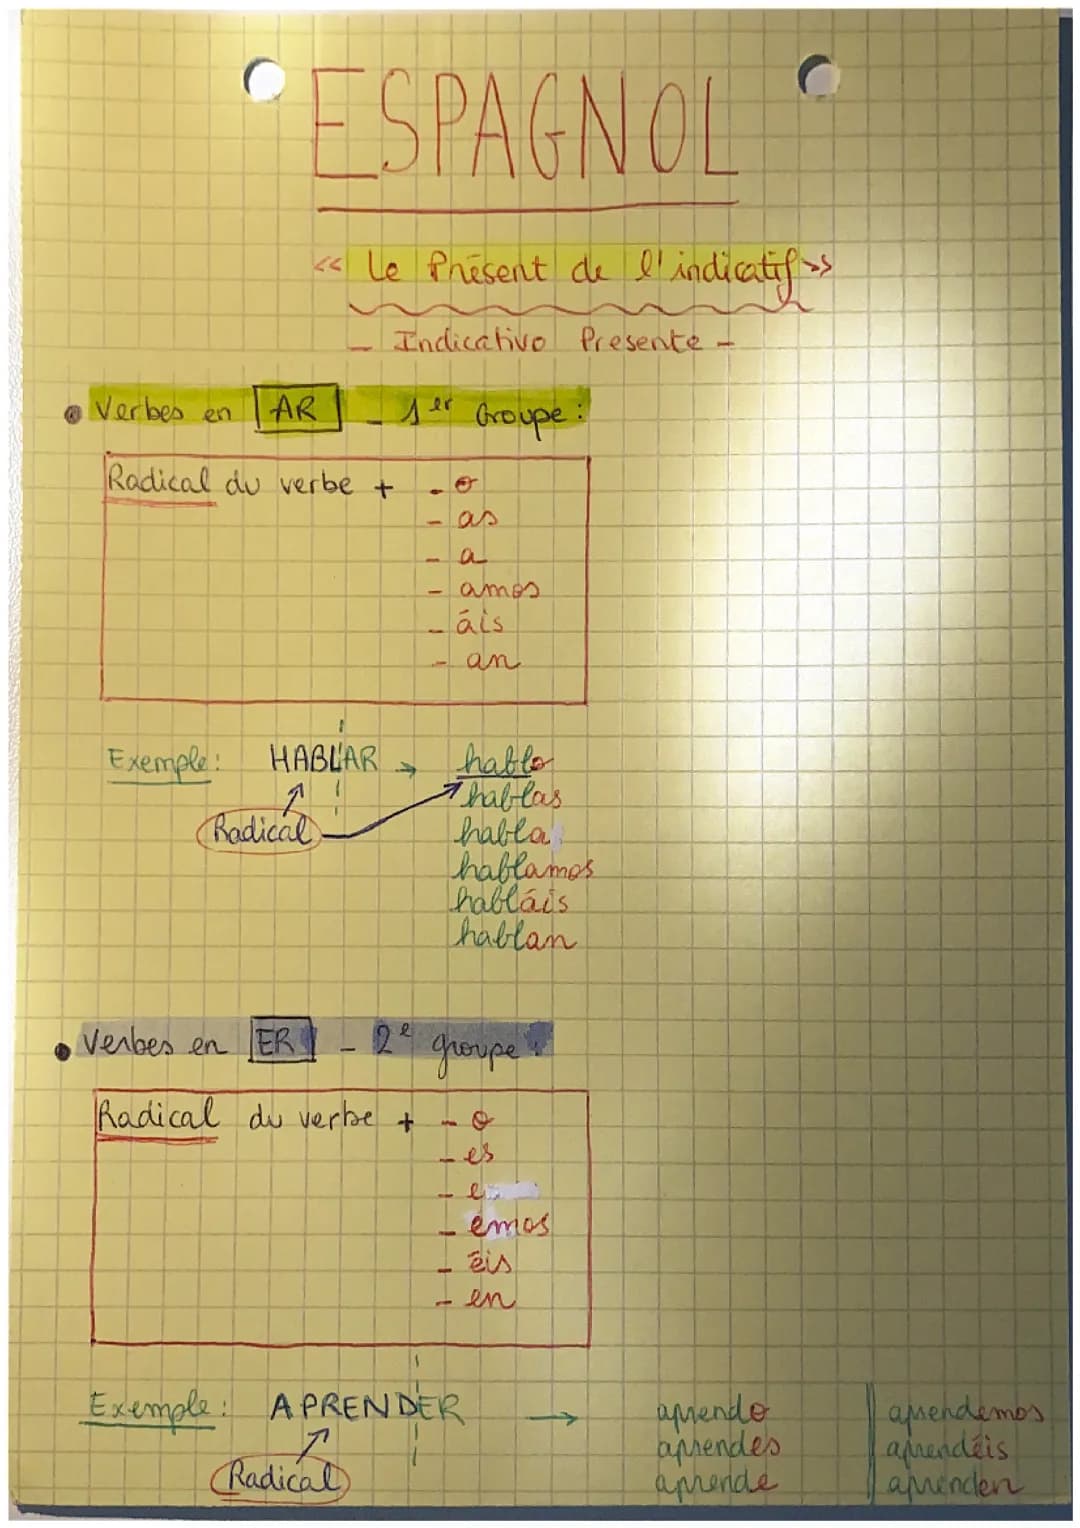 ESPAGNOL
<< Le Présent de l'indicatif >>
- Indicativo Presente -
• Verbes en AR - 1er Groupe :
Radical du verbe + - o
- as
- a
- amos
- áis
- an
Exemple : HABLAR → hablo
hablas
Radical habla
hablamos
habláis
hablan
• Verbes en ER - 2e groupe :
Radical du verbe + - o
- es
- e
- emos
- éis
- en
Exemple : APRENDER → aprendo || aprendemos
aprendes aprendéis
Radical aprende aprenden